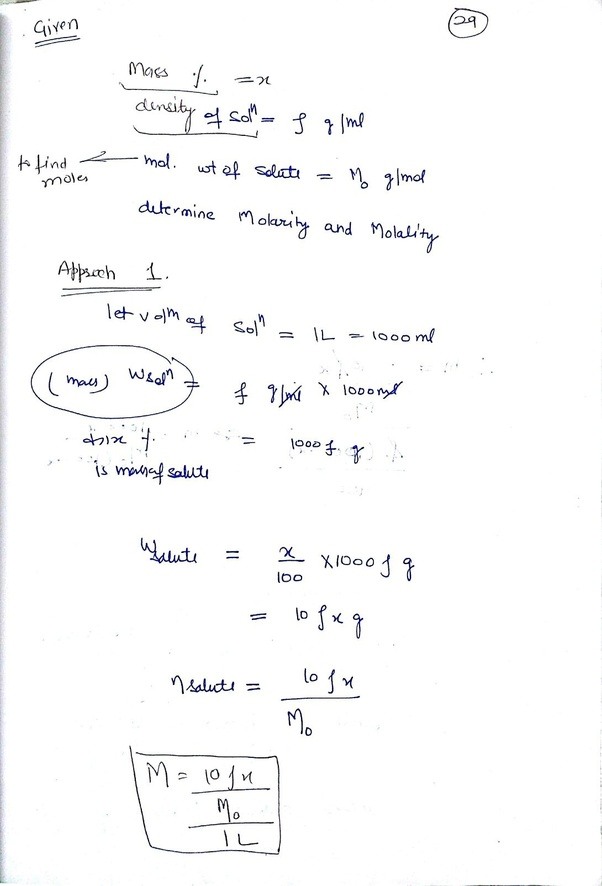 Given
29
Mass % = x
density of solⁿ = ρ g/ml
to find moles ← mol. wt of solute = M₀ g/mol
determine Molarity and Molality
Approch 1.
let volᵐ of solⁿ = 1L = 1000 ml
(mass) Wsolⁿ = ρ g/ml × 1000 ml
x % = 1000 ρ g
is mass of solute
Wsolute = x/100 × 1000 ρ g
= 10 ρ x g
ηsolute = 10 ρ x / M₀
M = 10 ρ x / M₀ / 1L